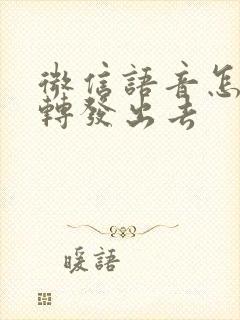 微信語音怎
轉發出去
暖語